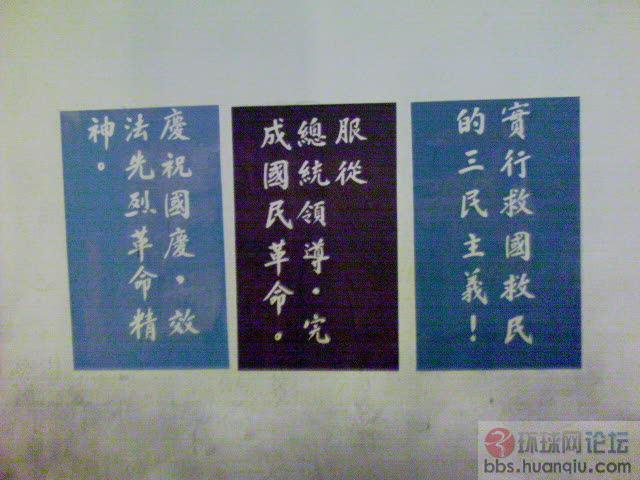 實行救國救民
的三民主義！
服從
總統領導，完
成國民革命。
慶祝國慶，效
法先烈革命精
神。
环球网论坛
bbs.huanqiu.com